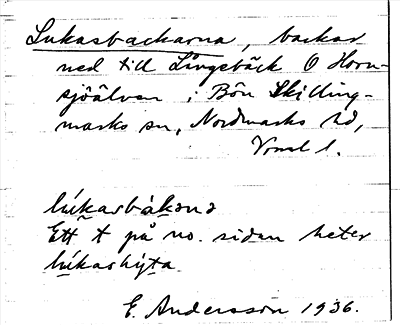 Lukasbackarna, backar
ned till Långebäck O Horn-
sjöälven i Bön Skilling-
marks sn, Nordmarks hd,
Vrml l.
lúkasbàkənɑ
Ett t på no. sidan heter
lúkashýta.
E. Andersson 1936.